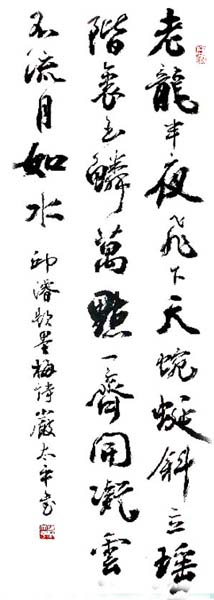 老龍半夜飛下天蜿蜒斜立瑶
階裏玉鱗萬點一齊開凝雲
不流月如水
邱濬題墨梅詩嚴太平書